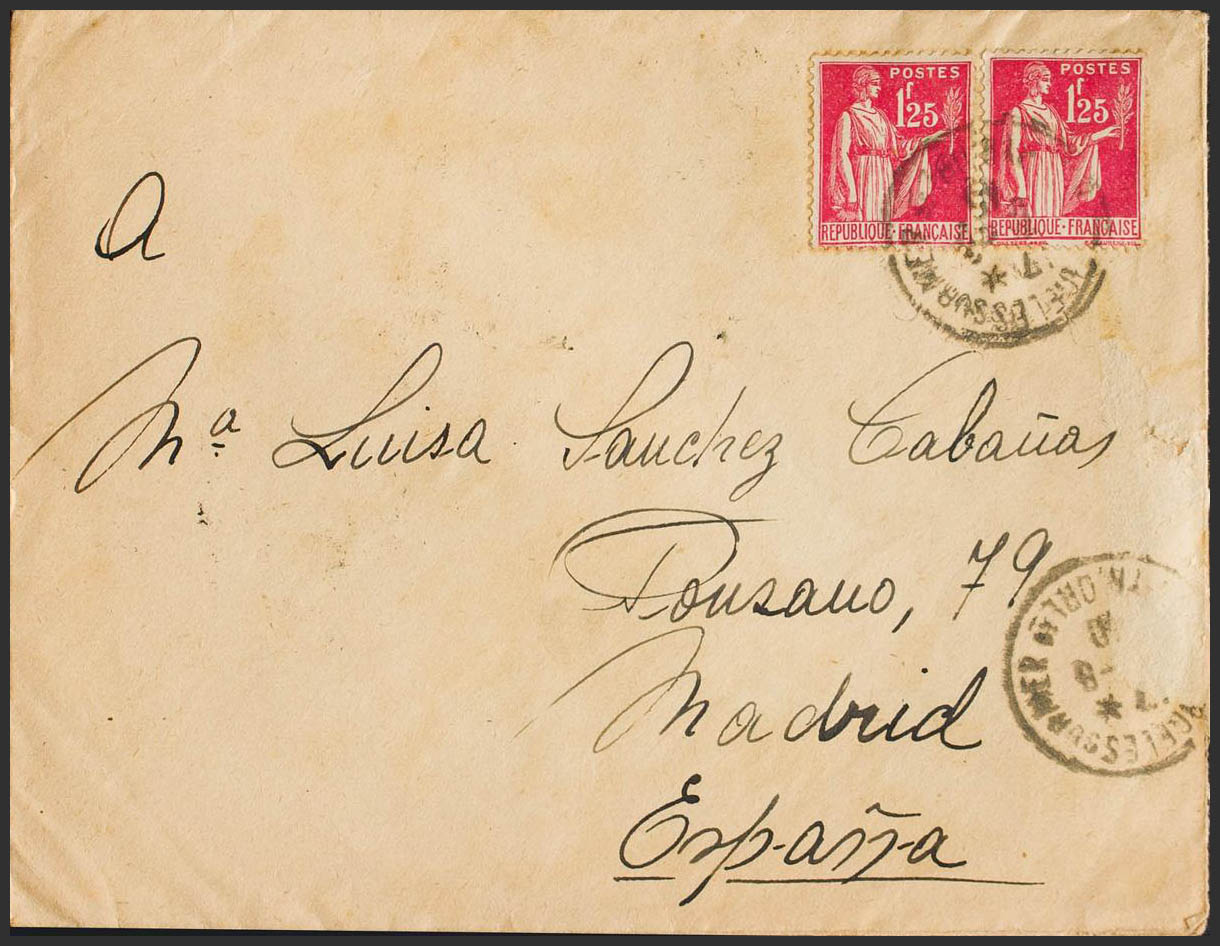 POSTES
1f25
REPUBLIQUE·FRANÇAISE
POSTES
1f25
REPUBLIQUE·FRANÇAISE
SUR MER
A
Mª Luisa Sanchez Cabañas
Ponzano, 79
Madrid
España
SUR MER